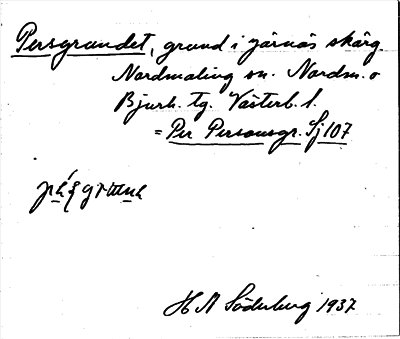 Persgrundet, grund i Järnäs skärg.
Nordmaling sn. Nordm. o
Bjurh. tg. Västerb. l.
= Per Personsgr. Sj 107
H A Söderberg 1937